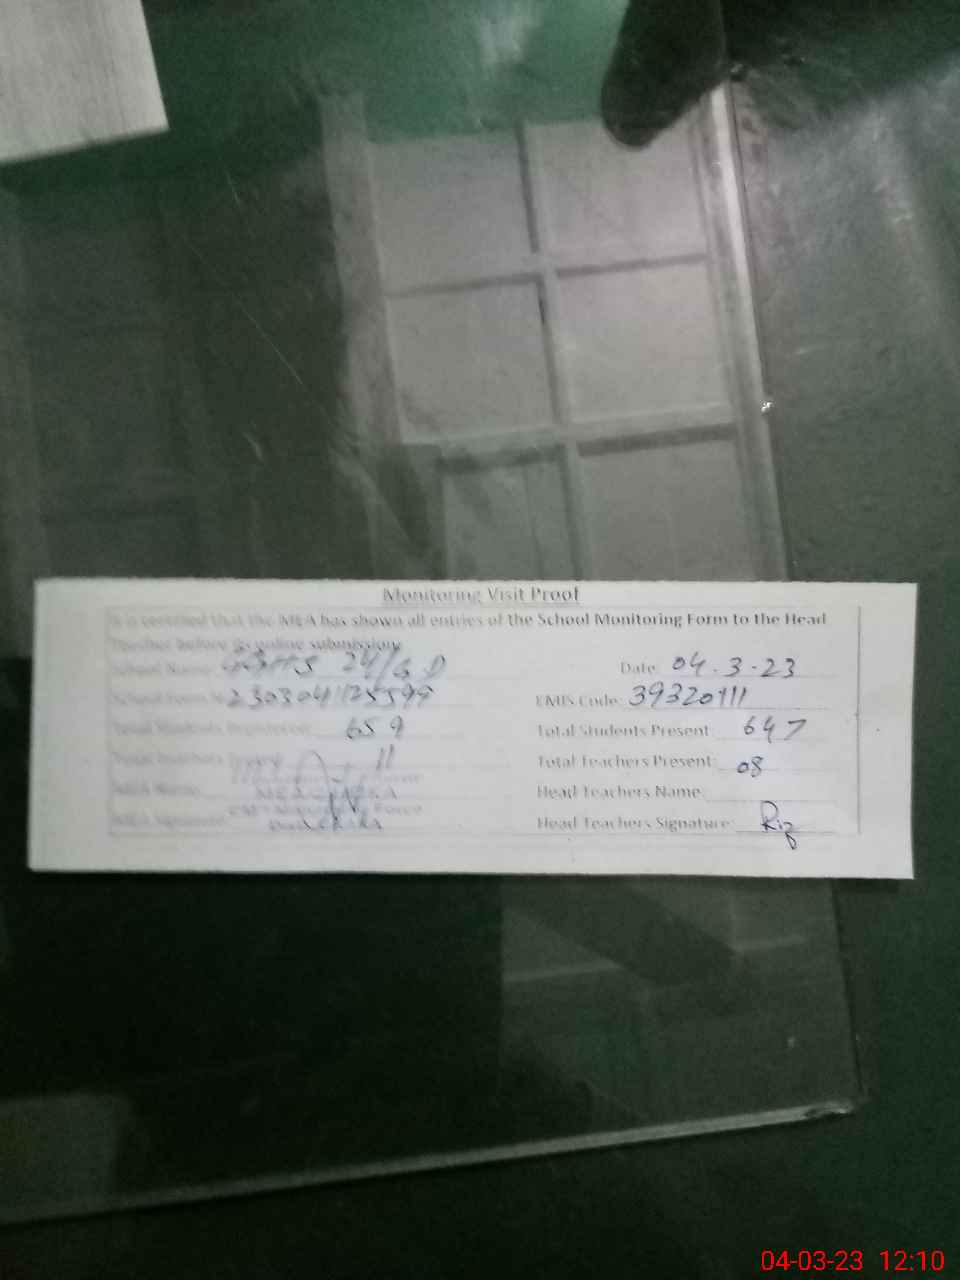 Monitoring Visit Proof
It is certified that the MEA has shown all entries of the School Monitoring Form to the Head
Teacher before its online submission.
School Name: GGHS 24/GD Date: 04.3.23
School Form No 230304 EMIS Code: 39320111
Total Students Registered: 659 Total Students Present: 647
Total Teachers 11 Total Teachers Present: 08
MEA Name: Head Teachers Name:
MEA Signature: Head Teachers Signature: Riz
04-03-23 12:10